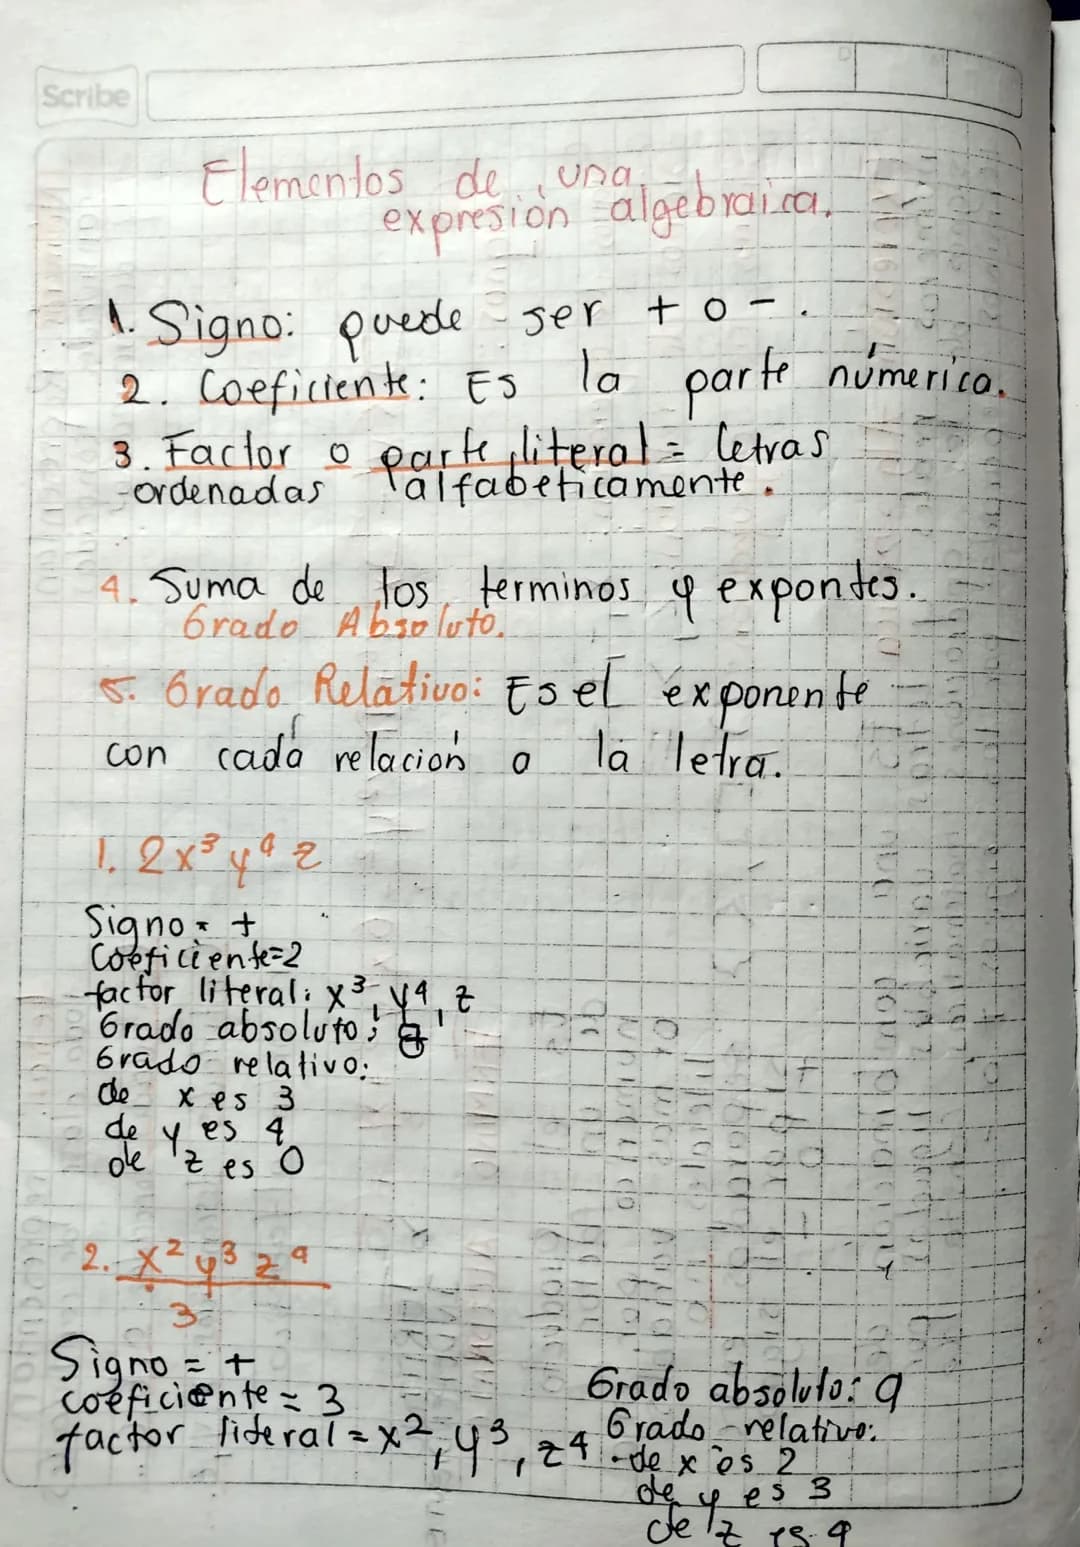 Scribe
Elementos de una
expresión algebraica.
1. Signo: puede ser + o - .
2. Coeficiente: Es la parte númerica.
3. Factor o parte literal = letras
ordenadas alfabeticamente.
4. Suma de los terminos y expontes.
Grado Absoluto.
5. Grado Relativo: Es el exponente
con cada relación a la letra.
1. 2x³y⁴z
Signo = +
Coeficiente=2
factor literal: x³, y⁴, z
Grado absoluto: 8
Grado relativo:
de x es 3
de y es 4
de z es 0
2. x²y³z⁴
3
Signo = +
coeficiente = 3
factor literal = x², y³, z⁴
Grado absoluto: 9
Grado relativo:
de x es 2
de y es 3
de z es 4